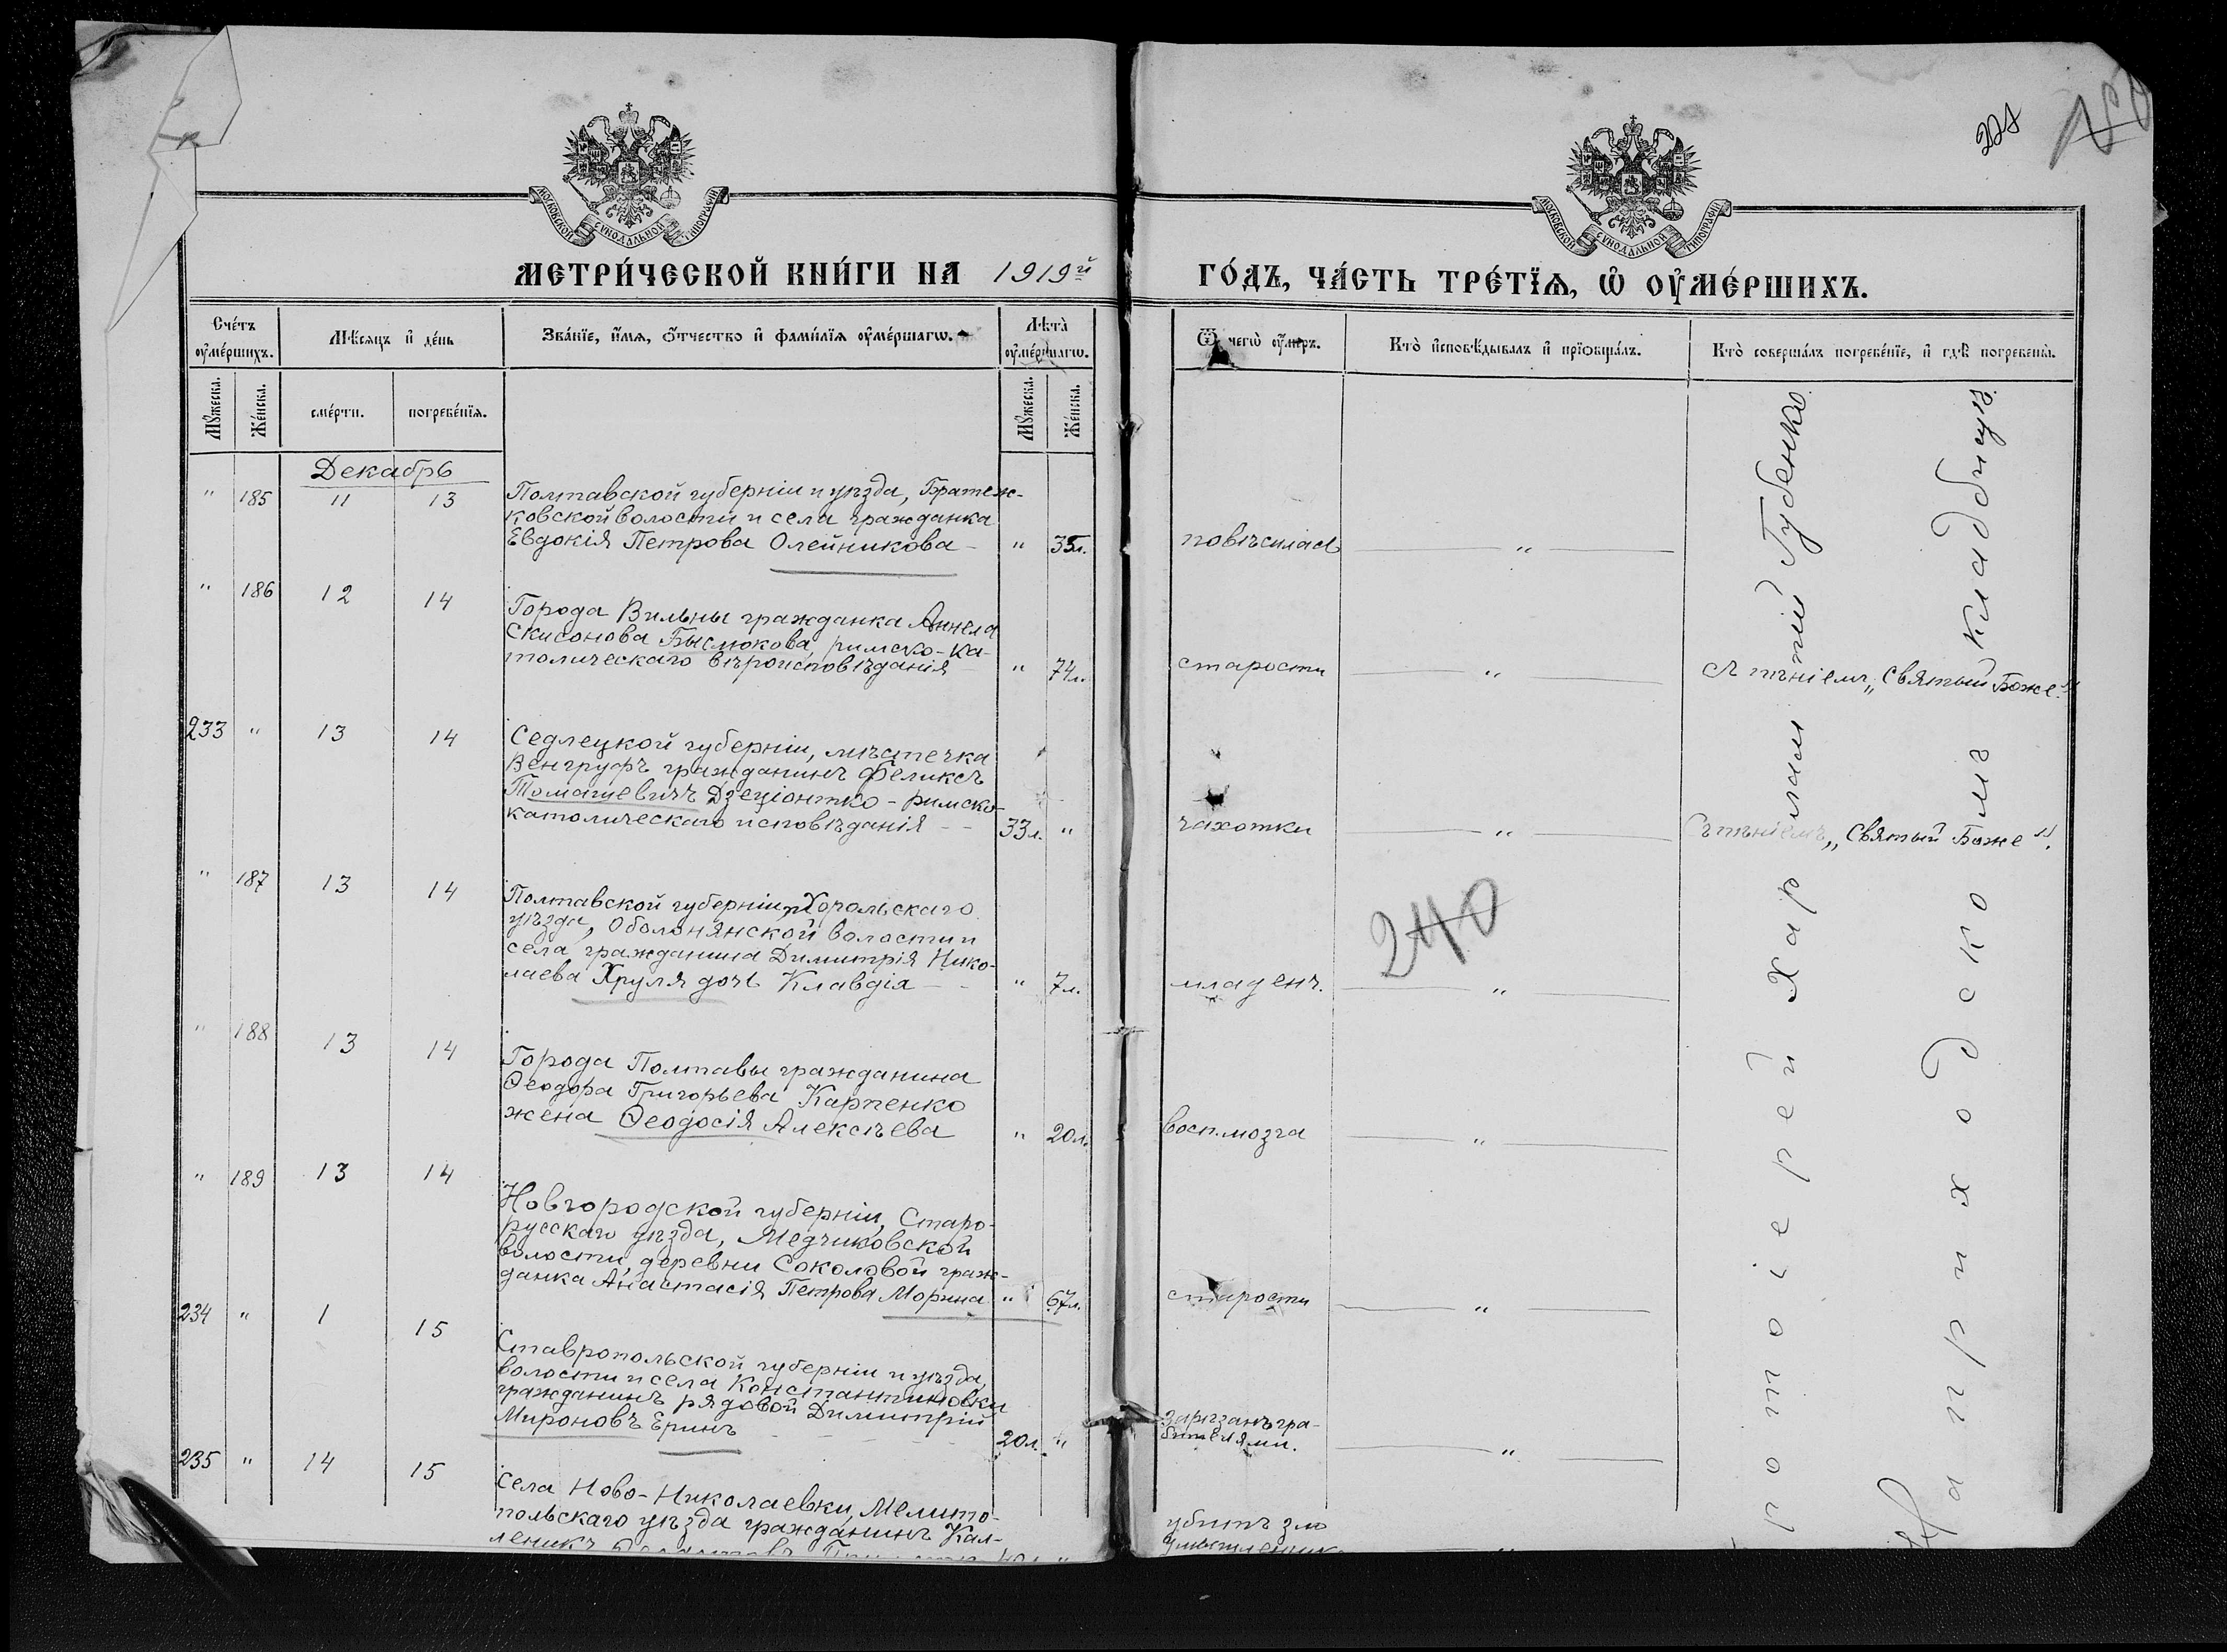 224
МОСКОВСКОЙ СѴНОДАЛЬНОЙ ТИПОГРАФІИ
МОСКОВСКОЙ СѴНОДАЛЬНОЙ ТИПОГРАФІИ
МЕТРИ́ЧЕСКОЙ КНИ́ГИ НА 1919й
ГО́ДЪ, ЧА́СТЬ ТРЕ́ТЇѦ, Ѡ҆ ОУ҆МЕ́РШИХЪ.
Сче́тъ оу҆ме́ршихъ.
Мѣ́сяцъ и҆ де́нь
Зва́нїе, и҆́мѧ, ѻ҆́тчество и҆ фами́лїѧ оу҆ме́ршагѡ.
Лѣ́та оу҆ме́ршагѡ.
Ѿ чегѡ̀ оу҆́меръ.
Кто̀ и҆сповѣ́дывалъ и҆ прїѡбща́лъ.
Кто̀ соверша́лъ погребе́нїе, и҆ гдѣ̀ погребены̀.
Мꙋ́жеска. Же́нска.
сме́рти. погребе́нїѧ.
Мꙋ́жеска. Же́нска.
Декабрь
" 185 11 13 Полтавской губерніи и уѣзда, Братеж-
ковской волости и села гражданка
Евдокія Петрова Олейникова - " 35л. повѣсилась "
" 186 12 14 Города Вильны гражданка Аннела
Скисонова Быслюкова, римско-ка-
толическаго вѣроисповѣданія " 74л. старости " Съ пѣніемъ „Святый Боже".
233 " 13 14 Седлецкой губерніи, мѣстечка
Венгруфъ гражданинъ Феликсъ
Томашевичъ Дзеціонтко - римско-
католическаго исповѣданія - - 33л. " чахотки " Съ пѣніемъ „Святый Боже".
" 187 13 14 Полтавской губерніи, Хорольскаго
уѣзда, Оболонянской волости и
села гражданина Димитрія Нико-
лаева Хруля дочь Клавдія - - " 7л. младенч. "
240
" 188 13 14 Города Полтавы гражданина
Ѳеодора Григорьева Карпенко
жена Ѳеодосія Алексѣева " 20л. восп. мозга "
" 189 13 14 Новгородской губерніи, Старо-
русскаго уѣзда, Медчиковской
волости, деревни Соколовой граж-
данка Анастасія Петрова Морина " 67л. старости "
234 " 1 15 Ставропольской губерніи и уѣзда,
волости и села Константиновки
гражданинъ рядовой Димитрій
Мироновъ Еринъ - - - 20л. " зарѣзанъ гра-
бителями. "
235 " 14 15 Села Ново-Николаевки, Мелито-
польскаго уѣзда гражданинъ Кал-
леникъ 40л. " убитъ зло
умышленник
ротоіерей Харлампій Губенко
а приходскомъ кладбищѣ.